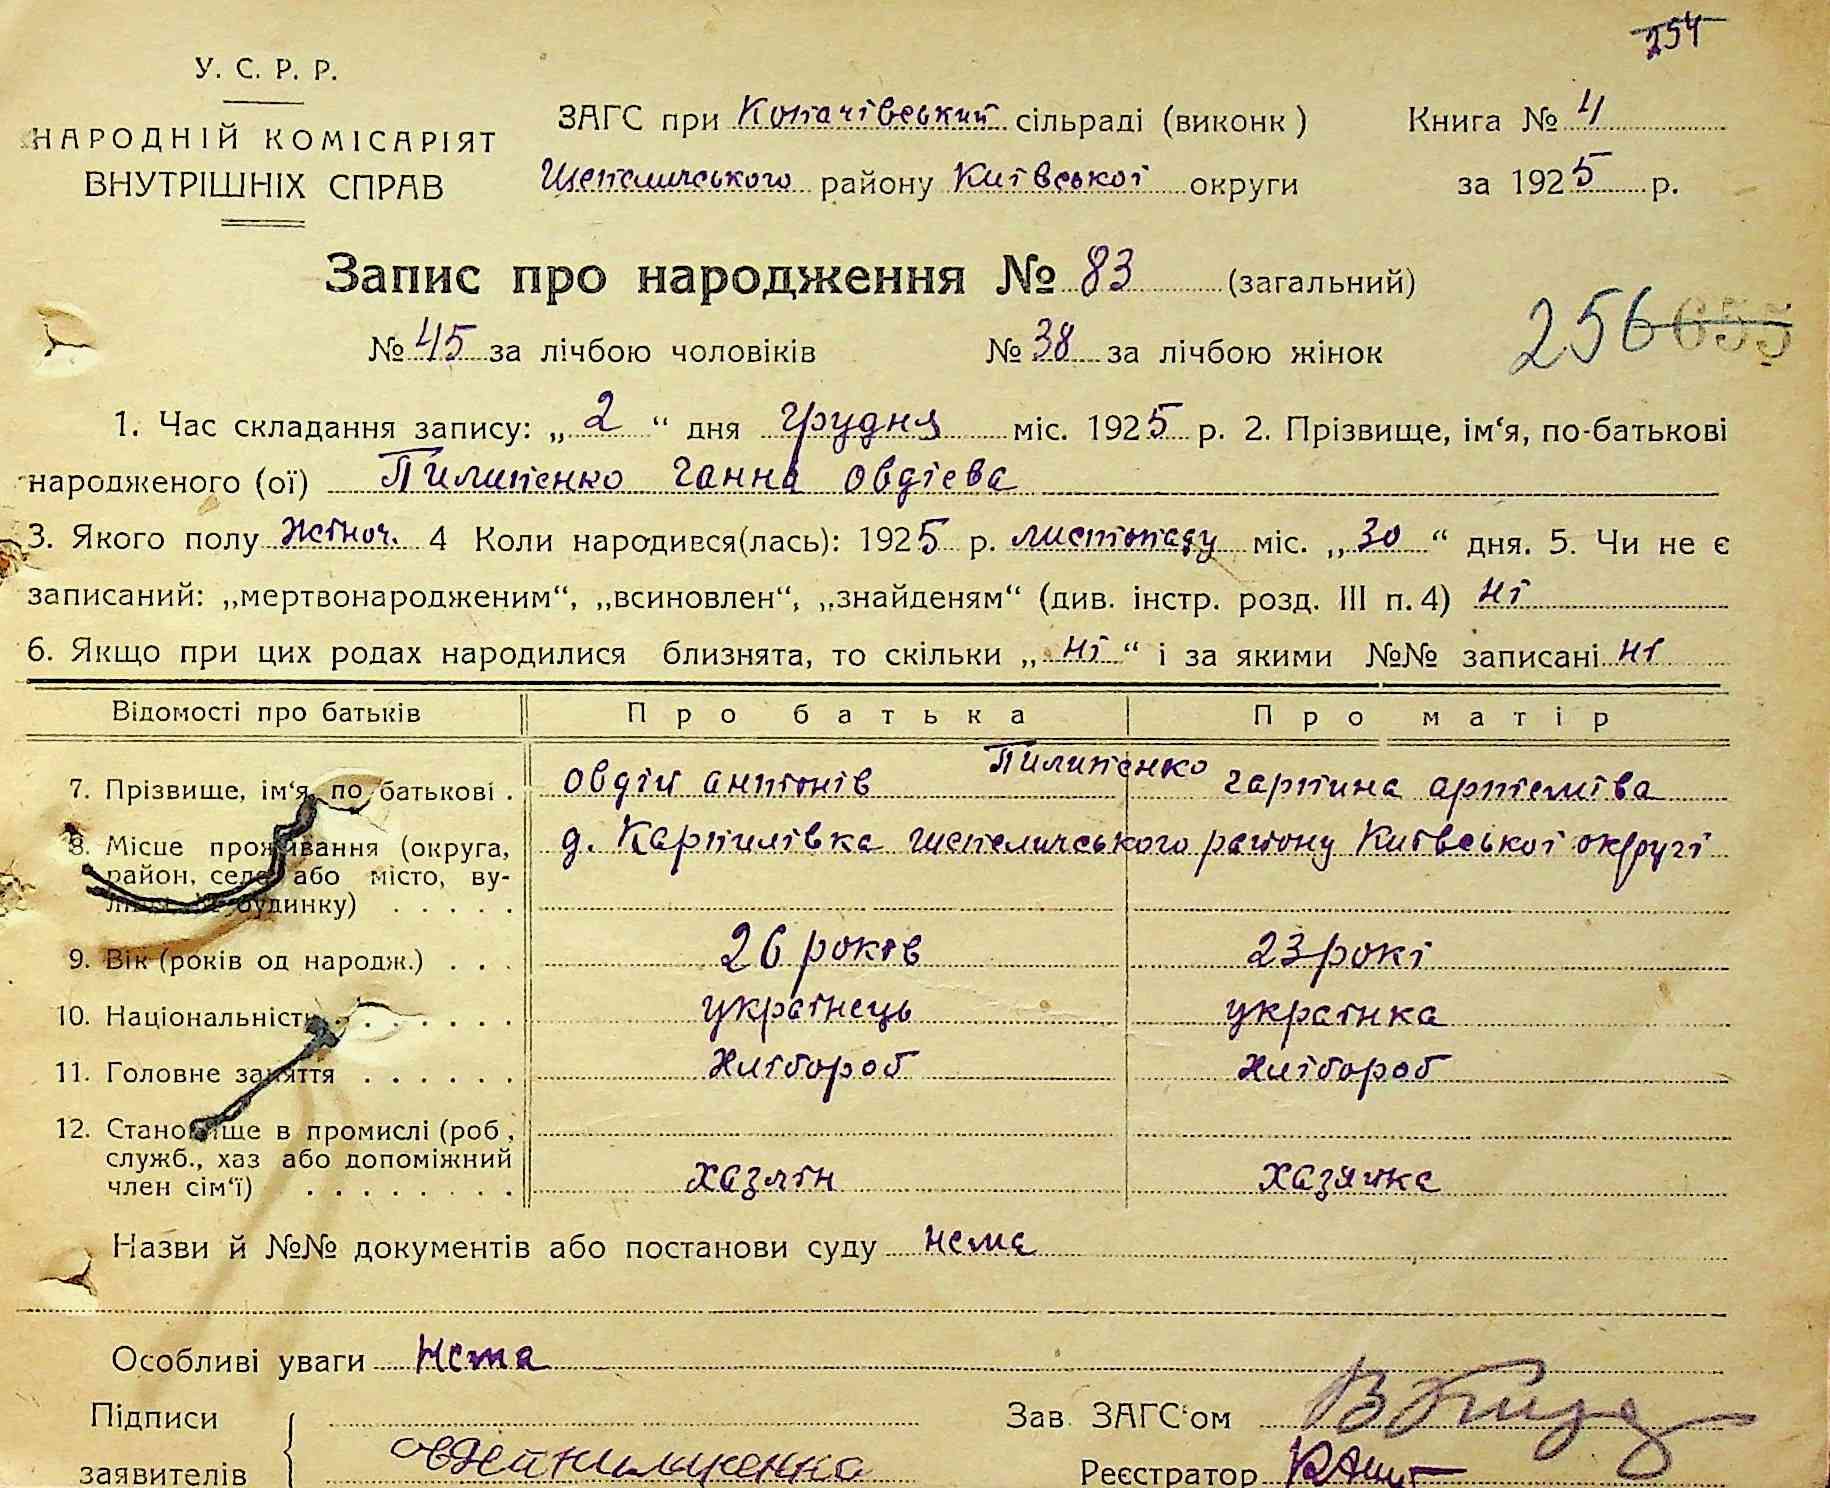 254
У. С. Р. Р.
НАРОДНІЙ КОМІСАРІЯТ
ВНУТРІШНІХ СПРАВ
ЗАГС при Копачівський сільраді (виконк)
Шепелицького району Київської округи
Книга № 4
за 1925 р.
Запис про народження № 83 (загальний)
№ 45 за лічбою чоловіків № 38 за лічбою жінок
256 655
1. Час складання запису: „ 2 “ дня грудня міс. 1925 р. 2. Прізвище, ім‘я, по-батькові
народженого (ої) Пилипенко Ганна Овдієва
3. Якого полу жіноч. 4 Коли народився(лась): 1925 р. листопаду міс. „ 30 “ дня. 5. Чи не є
записаний: „мертвонародженим“, „всиновлен“, „знайденям“ (див. інстр. розд. III п. 4) ні
6. Якщо при цих родах народилися близнята, то скільки „ ні “ і за якими №№ записані ні
Відомості про батьків Про батька Про матір
7. Прізвище, ім‘я, по батькові . Овдій Антонів Пилипенко Гарпина Артемїва
8. Місце проживання (округа, район, село або місто, ву- д. Карпилівка Шепелицького району Київської округі
будинку) . . . . .
9. Вік (років од народж.) . . . 26 років 23 рокі
10. Національність . . . . . . українець українка
11. Головне заняття . . . . . . хлібороб хлібороб
12. Становище в промислі (роб,
служб., хаз або допоміжний
член сім‘ї) . . . . . . . . хазяїн хазяйка
Назви й №№ документів або постанови суду нема
Особливі уваги нема
Підписи Зав. ЗАГС‘ом
заявителів Реєстратор